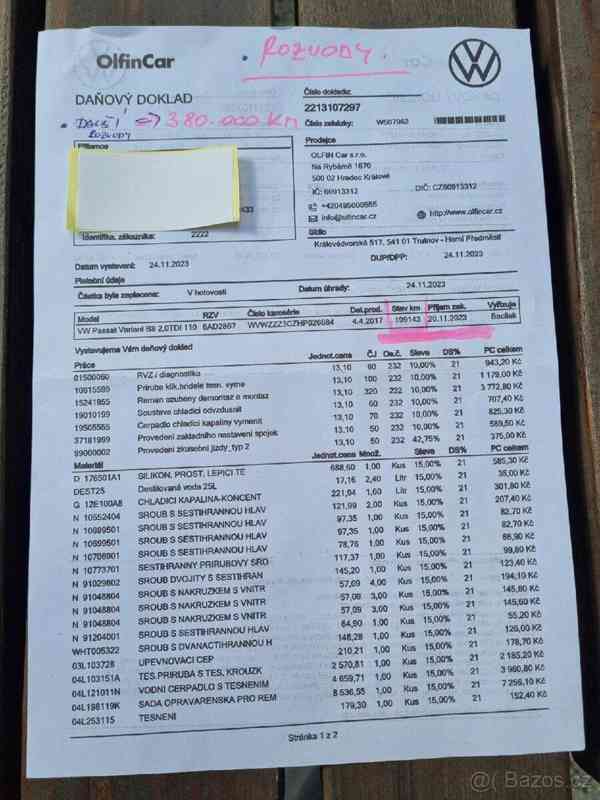 OlfinCar
• ROZVODY.
DAŇOVÝ DOKLAD
Číslo dokladu:
2213107297
• DALŠÍ ROZVODY => 380.000 Km
Číslo zakázky: W507962
Příjemce
Prodejce
OLFIN Car s.r.o.
Na Rybárně 1670
500 02 Hradec Králové
IČ: 60913312 DIČ: CZ60913312
+420495000555
info@olfincar.cz http://www.olfincar.cz
Sídlo
Královédvorská 517, 541 01 Trutnov - Horní Předměstí
Identifika. zákazníka: 2222
Datum vystavení: 24.11.2023 DUP/DPP: 24.11.2023
Platební údaje
Částka bude zaplacena: V hotovosti Datum úhrady: 24.11.2023
Model RZV Číslo karosérie Dat.prod. Stav km Přijem zak. Vyřizuje
VW Passat Variant B8 2,0TDI 110 6AD2867 4.4.2017 199143 20.11.2023
Vystavujeme Vám daňový doklad
Práce Jednot.cena ČJ Oe.č. Sleva DS% PC celkem
01500060 RVZ / diagnostika 13,10 80 232 10,00% 21 943,20 Kč
10615599 Priruba klik.hridele tesn. vyme 13,10 100 232 10,00% 21 1 179,00 Kč
15241955 Remen ozubeny demontaz a montaz 13,10 320 232 10,00% 21 3 772,80 Kč
19010199 Soustava chladici odvzdusnit 13,10 60 232 10,00% 21 707,40 Kč
19505555 Cerpadlo chladici kapaliny vymenit 13,10 70 232 10,00% 21 825,30 Kč
37181999 Provedení základního nastavení spojek 13,10 50 232 10,00% 21 589,50 Kč
99000002 Provedení zkušební jízdy_typ 2 13,10 50 232 42,75% 21 375,00 Kč
Materiál Jednot.cena Množ. Sleva DS% PC celkem
D 176501A1 SILIKON. PROST. LEPICI TE 688,60 1,00 Kus 15,00% 21 585,30 Kč
DEST25 Destilovaná voda 25L 17,16 2,40 Litr 15,00% 21 35,00 Kč
G 12E100A8 CHLADICI KAPALINA-KONCENT 221,94 1,60 Litr 15,00% 21 301,80 Kč
N 10552404 SROUB S SESTIHRANNOU HLAV 121,99 2,00 Kus 15,00% 21 207,40 Kč
N 10699501 SROUB S SESTIHRANNOU HLAV 97,35 1,00 Kus 15,00% 21 82,70 Kč
N 10699501 SROUB S SESTIHRANNOU HLAV 97,35 1,00 Kus 15,00% 21 82,70 Kč
N 10706901 SROUB S SESTIHRANNOU HLAV 78,76 1,00 Kus 15,00% 21 66,90 Kč
N 10773701 SESTIHRANNY PRIRUBOVY SRO 117,37 1,00 Kus 15,00% 21 99,80 Kč
N 91029802 SROUB DVOJITY S SESTIHRAN 145,20 1,00 Kus 15,00% 21 123,40 Kč
N 91048804 SROUB S NAKRUZKEM S VNITR 57,09 4,00 Kus 15,00% 21 194,10 Kč
N 91048804 SROUB S NAKRUZKEM S VNITR 57,09 3,00 Kus 15,00% 21 145,60 Kč
N 91048804 SROUB S NAKRUZKEM S VNITR 57,09 3,00 Kus 15,00% 21 145,60 Kč
N 91204001 SROUB S SESTIHRANNOU HLAV 64,90 1,00 Kus 15,00% 21 55,20 Kč
WHT005322 SROUB S DVANACTIHRANNOU H 148,28 1,00 Kus 15,00% 21 126,00 Kč
03L103728 UPEVNOVACI CEP 210,21 1,00 Kus 15,00% 21 178,70 Kč
04L103151A TES.PRIRUBA S TES. KROUZK 2 570,81 1,00 Kus 15,00% 21 2 185,20 Kč
04L121011N VODNI CERPADLO S TESNENIM 4 659,71 1,00 Kus 15,00% 21 3 960,80 Kč
04L198119K SADA OPRAVARENSKA PRO REM 8 536,55 1,00 Kus 15,00% 21 7 256,10 Kč
04L253115 TESNENI 179,30 1,00 Kus 15,00% 21 152,40 Kč
Stránka 1 z 2
Bazos.cz